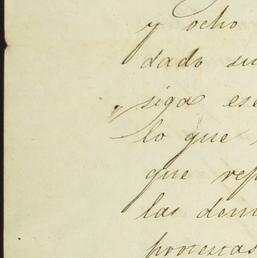 y ocho
dado su
siga ese
lo que
que rep
las dem
protestas